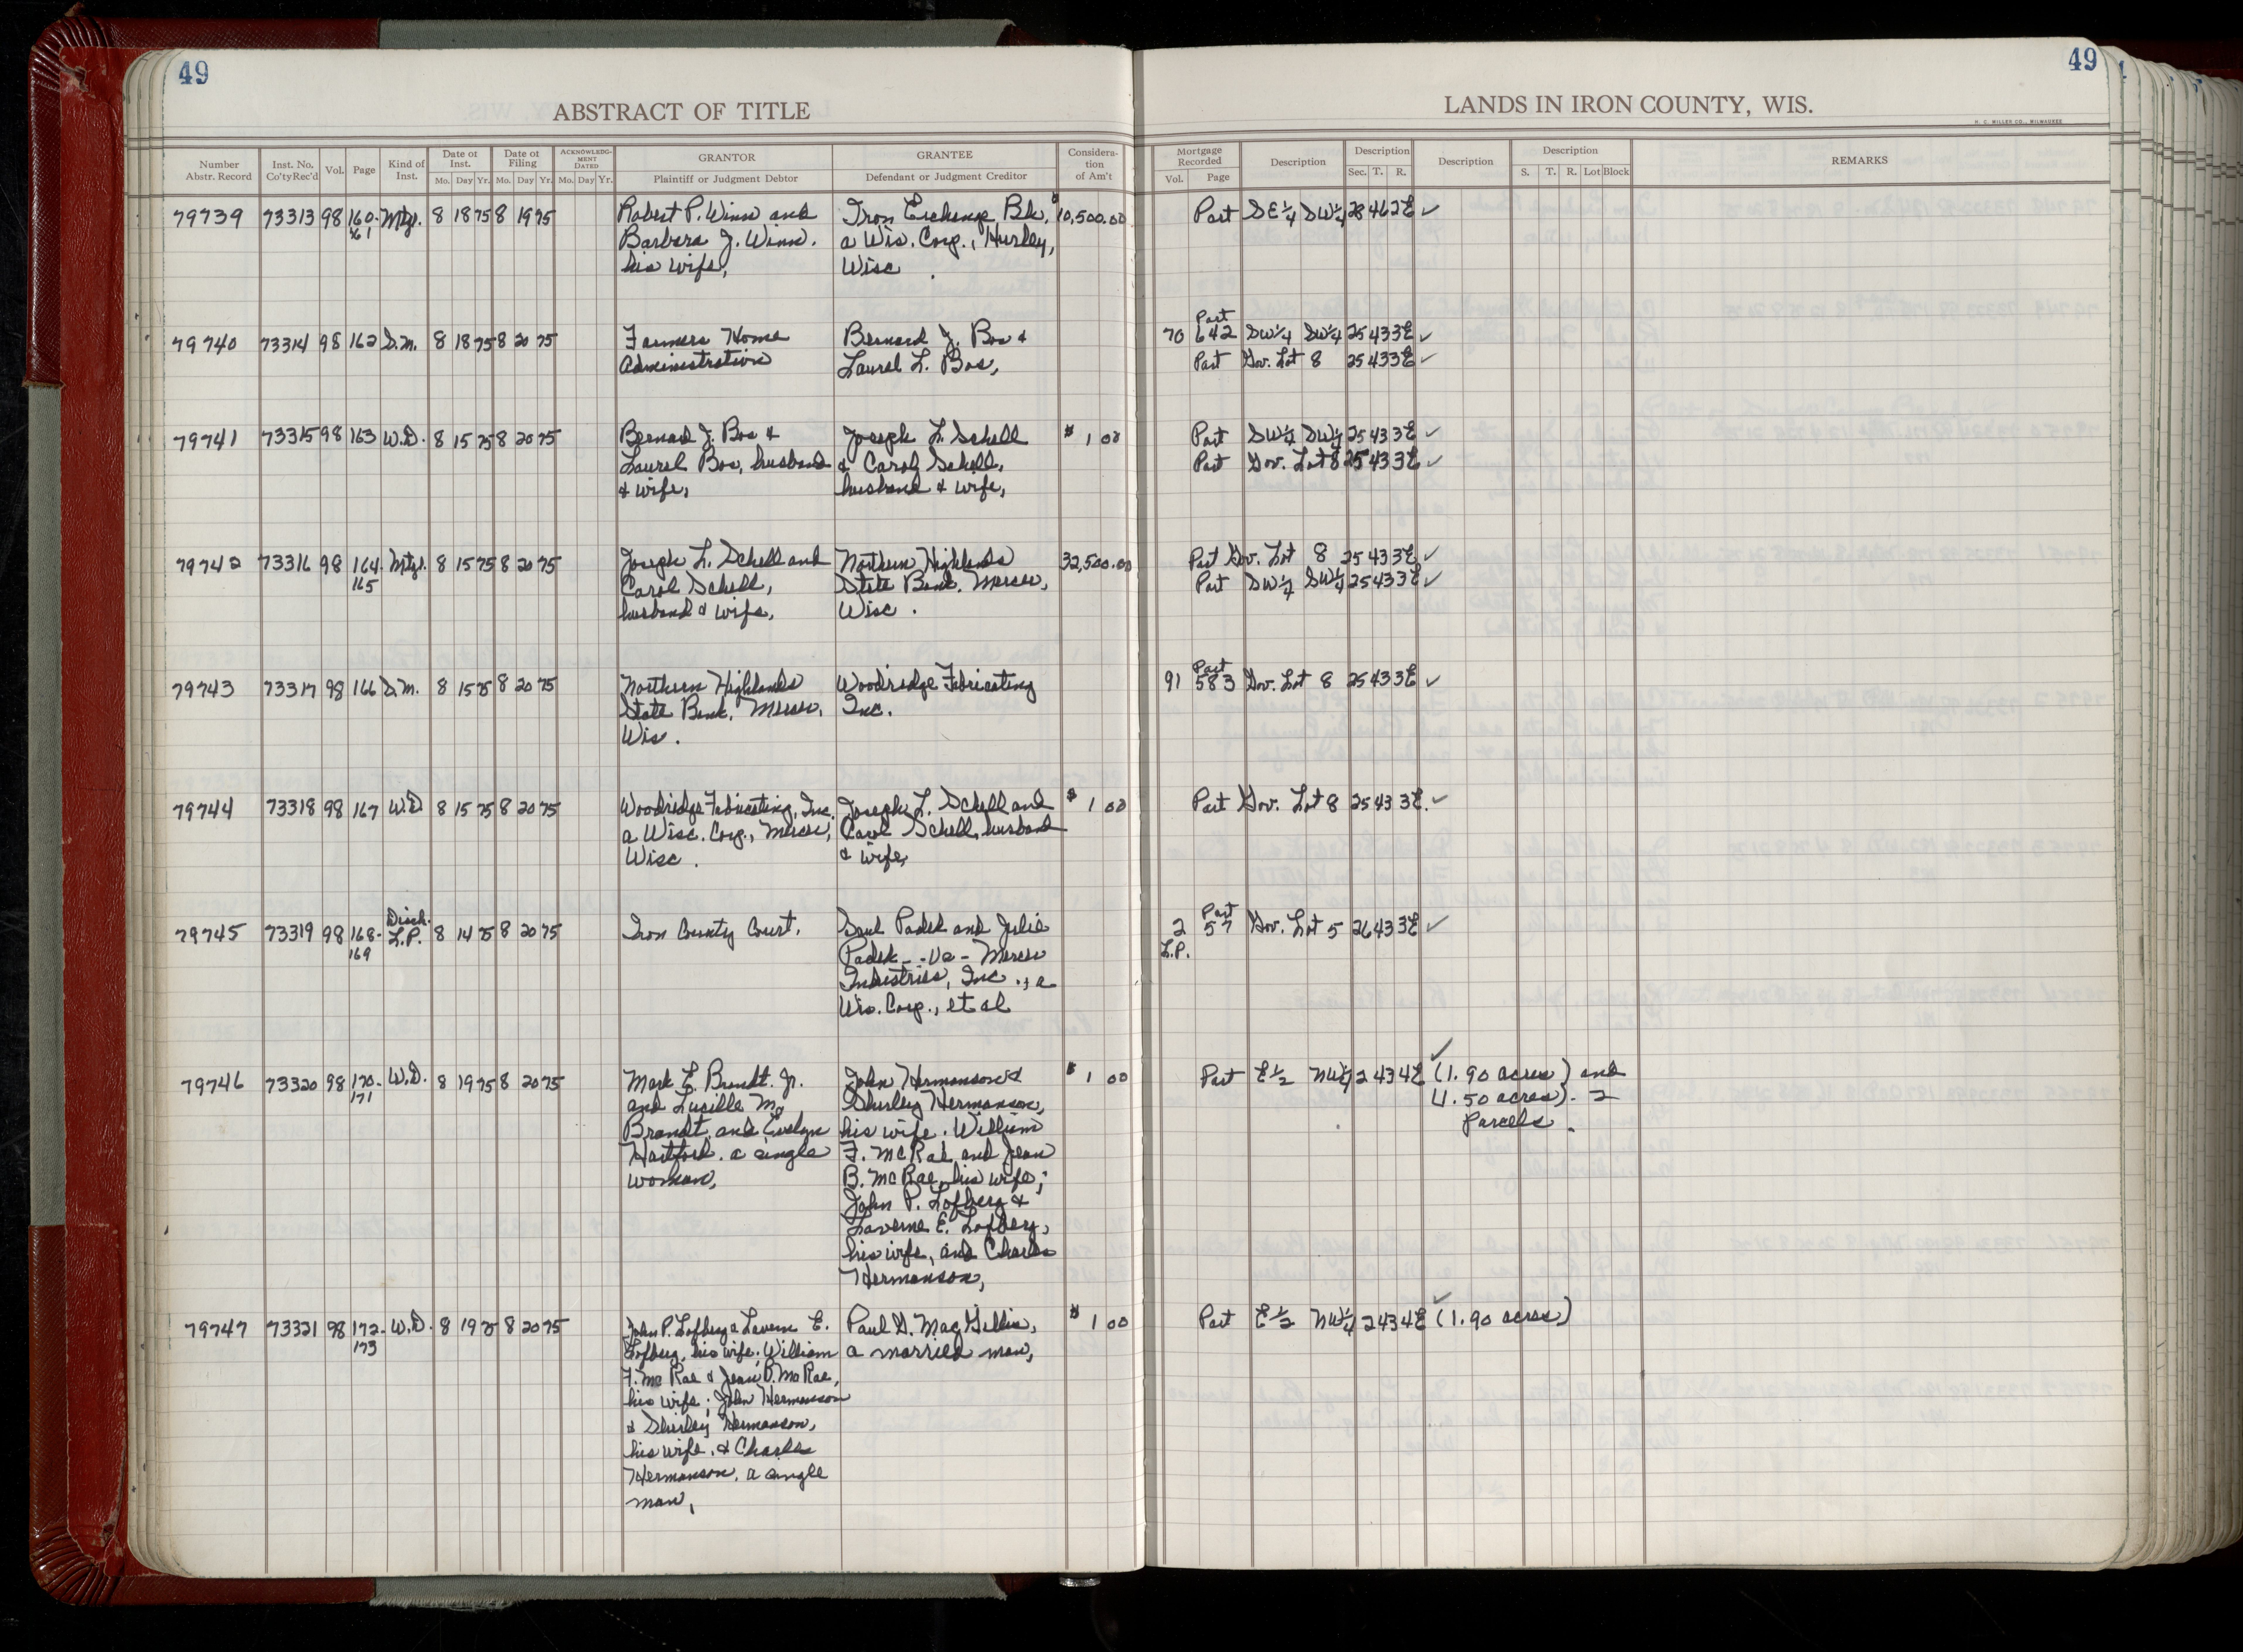 49
49
ABSTRACT OF TITLE
LANDS IN IRON COUNTY, WIS.
H. C. MILLER CO., MILWAUKEE
Number Abstr. Record
Inst. No. Co'ty Rec'd
Vol.
Page
Kind of Inst.
Date of Inst. Mo. Day Yr.
Date of Filing Mo. Day Yr.
ACKNOWLEDGMENT DATED Mo. Day Yr.
GRANTOR Plaintiff or Judgment Debtor
GRANTEE Defendant or Judgment Creditor
Consideration of Am't
Mortgage Recorded Vol. Page
Description
Description Sec. T. R.
Description
Description S. T. R. Lot Block
REMARKS
79739 73313 98 160- Mtg. 8 18 75 8 19 75 Robert P. Winn and Iron Exchange Bk, $10,500.00 Part SE¼ SW¼ 28 46 2E ✓
161 Barbara J. Winn. a Wis. Corp., Hurley,
his wife, Wisc.
Part
79740 73314 98 162 S.M. 8 18 75 8 20 75 Farmers Home Bernard J. Bos & 70 642 SW¼ SW¼ 25 43 3E ✓
Administration Laurel L. Bos, Part Gov. Lot 8 25 43 3E ✓
79741 73315 98 163 W.D. 8 15 75 8 20 75 Bernard J. Bos & Joseph L. Schell $ 1 00 Part SW¼ SW¼ 25 43 3E ✓
Laurel Bos, husband & Carol Schell, Part Gov. Lot 8 25 43 3E ✓
& wife, husband & wife,
79742 73316 98 164- Mtg. 8 15 75 8 20 75 Joseph L. Schell and Northern Highlands 32,500.00 Part Gov. Lot 8 25 43 3E ✓
165 Carol Schell, State Bank, Mercer, Part SW¼ SW¼ 25 43 3E ✓
husband & wife, Wisc.
Part
79743 73317 98 166 S.M. 8 15 75 8 20 75 Northern Highlands Woodridge Fabricating 91 583 Gov. Lot 8 25 43 3E ✓
State Bank, Mercer, Inc.
Wis.
79744 73318 98 167 W.D 8 15 75 8 20 75 Woodridge Fabricating, Inc. Joseph L. Schell and $ 1 00 Part Gov. Lot 8 25 43 3E. ✓
a Wisc. Corp., Mercer, Carol Schell, husband
Wisc. & wife,
Disch. Part
79745 73319 98 168- L.P. 8 14 75 8 20 75 Iron County Court, Saul Padek and Julia 2 57 Gov. Lot 5 26 43 3E ✓
169 Padek - -vs- Mercer L.P.
Industries, Inc., a
Wis. Corp., et al
79746 73320 98 170- W.D. 8 19 75 8 20 75 Mark E. Brandt. Jr. John Hermanson & $ 1 00 Part E½ NW¼ 2 43 4E ✓ (1.90 acres) and
171 and Lucille M. Shirley Hermanson, (1.50 acres). 2
Brandt, and Evelyn his wife. William Parcels.
Hartford, a single F. McRae and Jean
woman, B. McRae, his wife;
John P. Lofberg &
Laverne E. Lofberg,
his wife, and Charles
Hermanson,
79747 73321 98 172- W.D. 8 19 75 8 20 75 John P. Lofberg & Lavern E. Paul G. MacGillis, $ 1 00 Part E½ NW¼ 2 43 4E ✓ (1.90 acres)
173 Lofberg, his wife; William a married man,
F. McRae & Jean B. McRae,
his wife; John Hermanson
& Shirley Hermanson,
his wife, & Charles
Hermanson, a single
man,